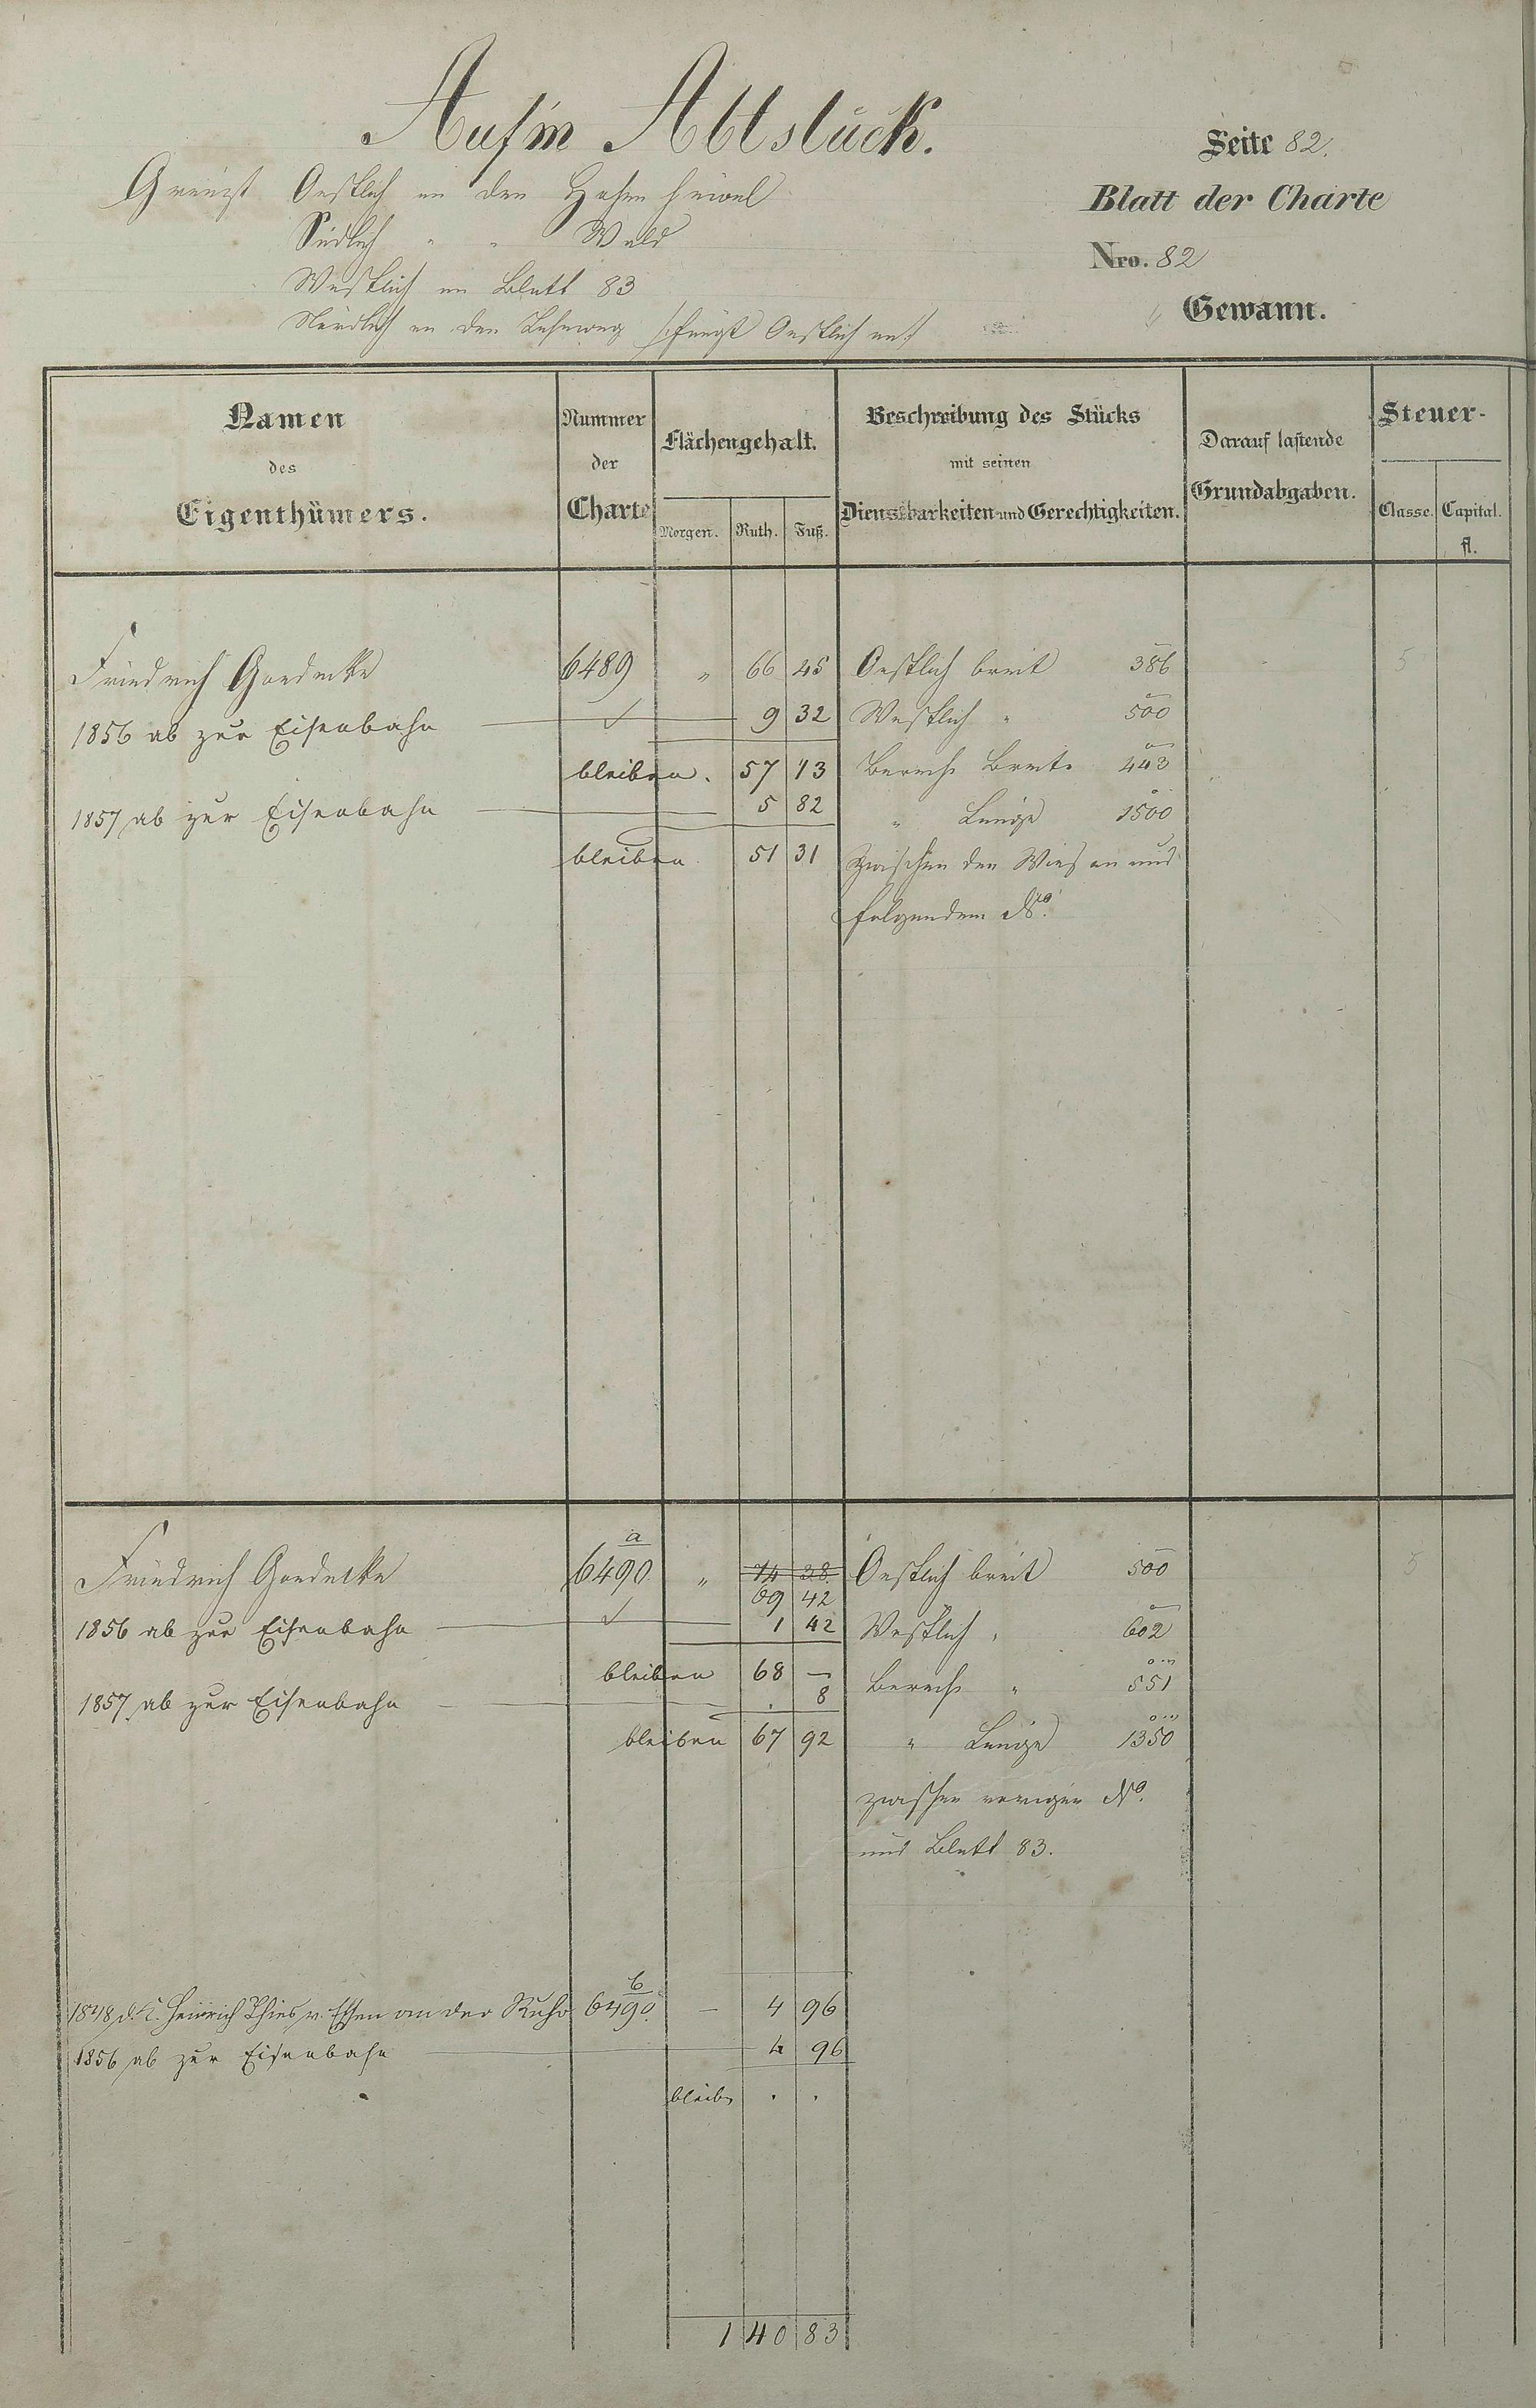 Auf'm Abtstück.
Seite 82.
Grenzt Oestlich an den Hohen
Blatt der Charte
Südlich " " Wald
Nro. 82
Westlich an Blatt 83
Gewann.
Nördlich an den Lehnweg /: fängt Oestlich an :/
Namen des Eigenthümers.
Nummer der Charte
Flächengehalt.
Morgen. Ruth. Fuß.
Beschreibung des Stücks mit seinen Dienstbarkeiten und Gerechtigkeiten.
Darauf lastende Grundabgaben.
Steuer-
Classe. Capital. fl.
Friedrich Goedecke 6489 " 66 45 Oestlich breit 386 5
1856 ab zur Eisenbahn 9 32 Westlich " 500
bleiben. 57 13 Berech. Breite 443
1857 ab zur Eisenbahn 5 82 " Länge 1500
bleiben 51 31 zwischen den Wiesen und
folgendem No.
Friedrich Goedecke 6490 a " 74 38 Oestlich breit 500 5
69 42
1856 ab zur Eisenbahn 1 42 Westlich " 602
bleiben 68 — Berech. " 551
1857 ab zur Eisenbahn . 8
bleiben 67 92 " Länge 1350
zwischen voriger No.
und Blatt 83.
1848 d. K. Heinrich Thies v. Essen an der Ruhr 6490 b — 4 96
1856 ab zur Eisenbahn 4 96
bleibt . .
1 40 83